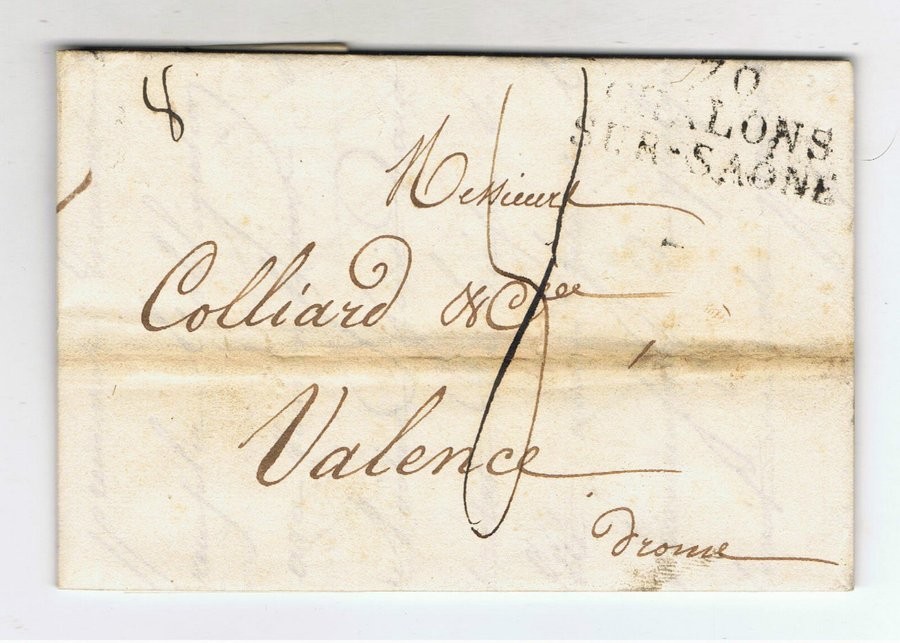 8
70
CHALONS
SUR-SAONE
Messieurs
Colliard & Cie
Valence
drome